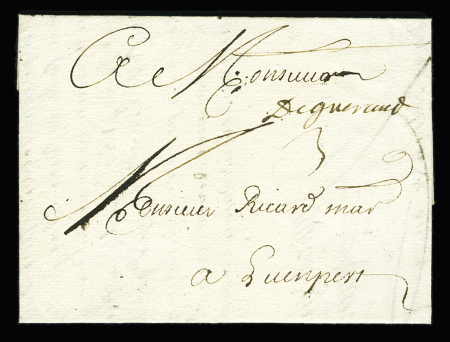 A Monsieur
Deguerand
3
Monsieur Ricard mar
a Guenpert